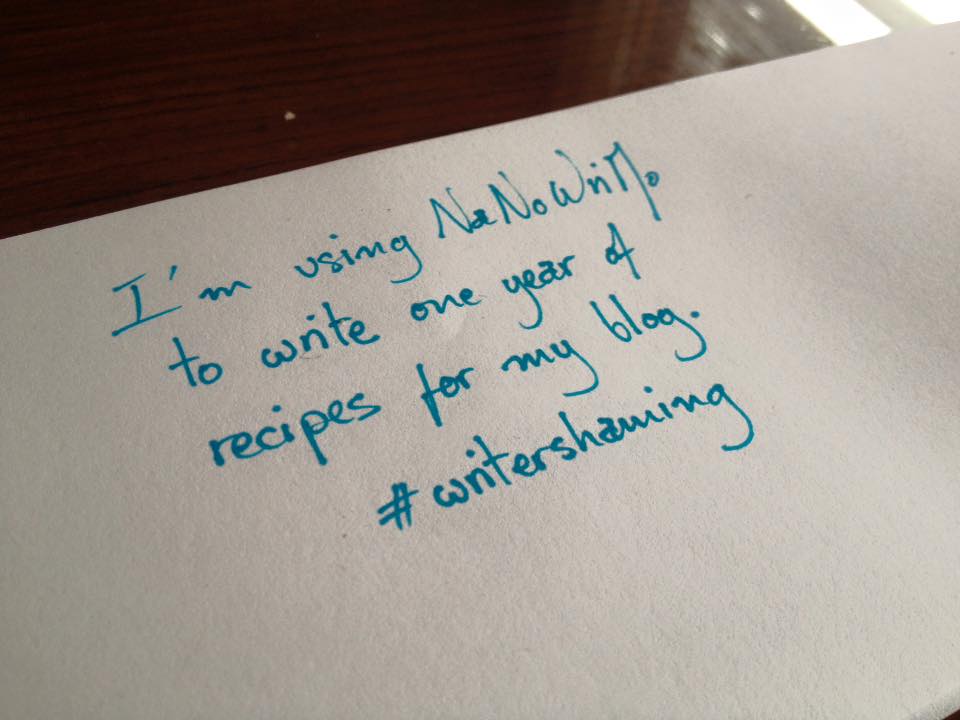 I'm using NaNoWriMo
to write one year of
recipes for my blog.
#writershaming